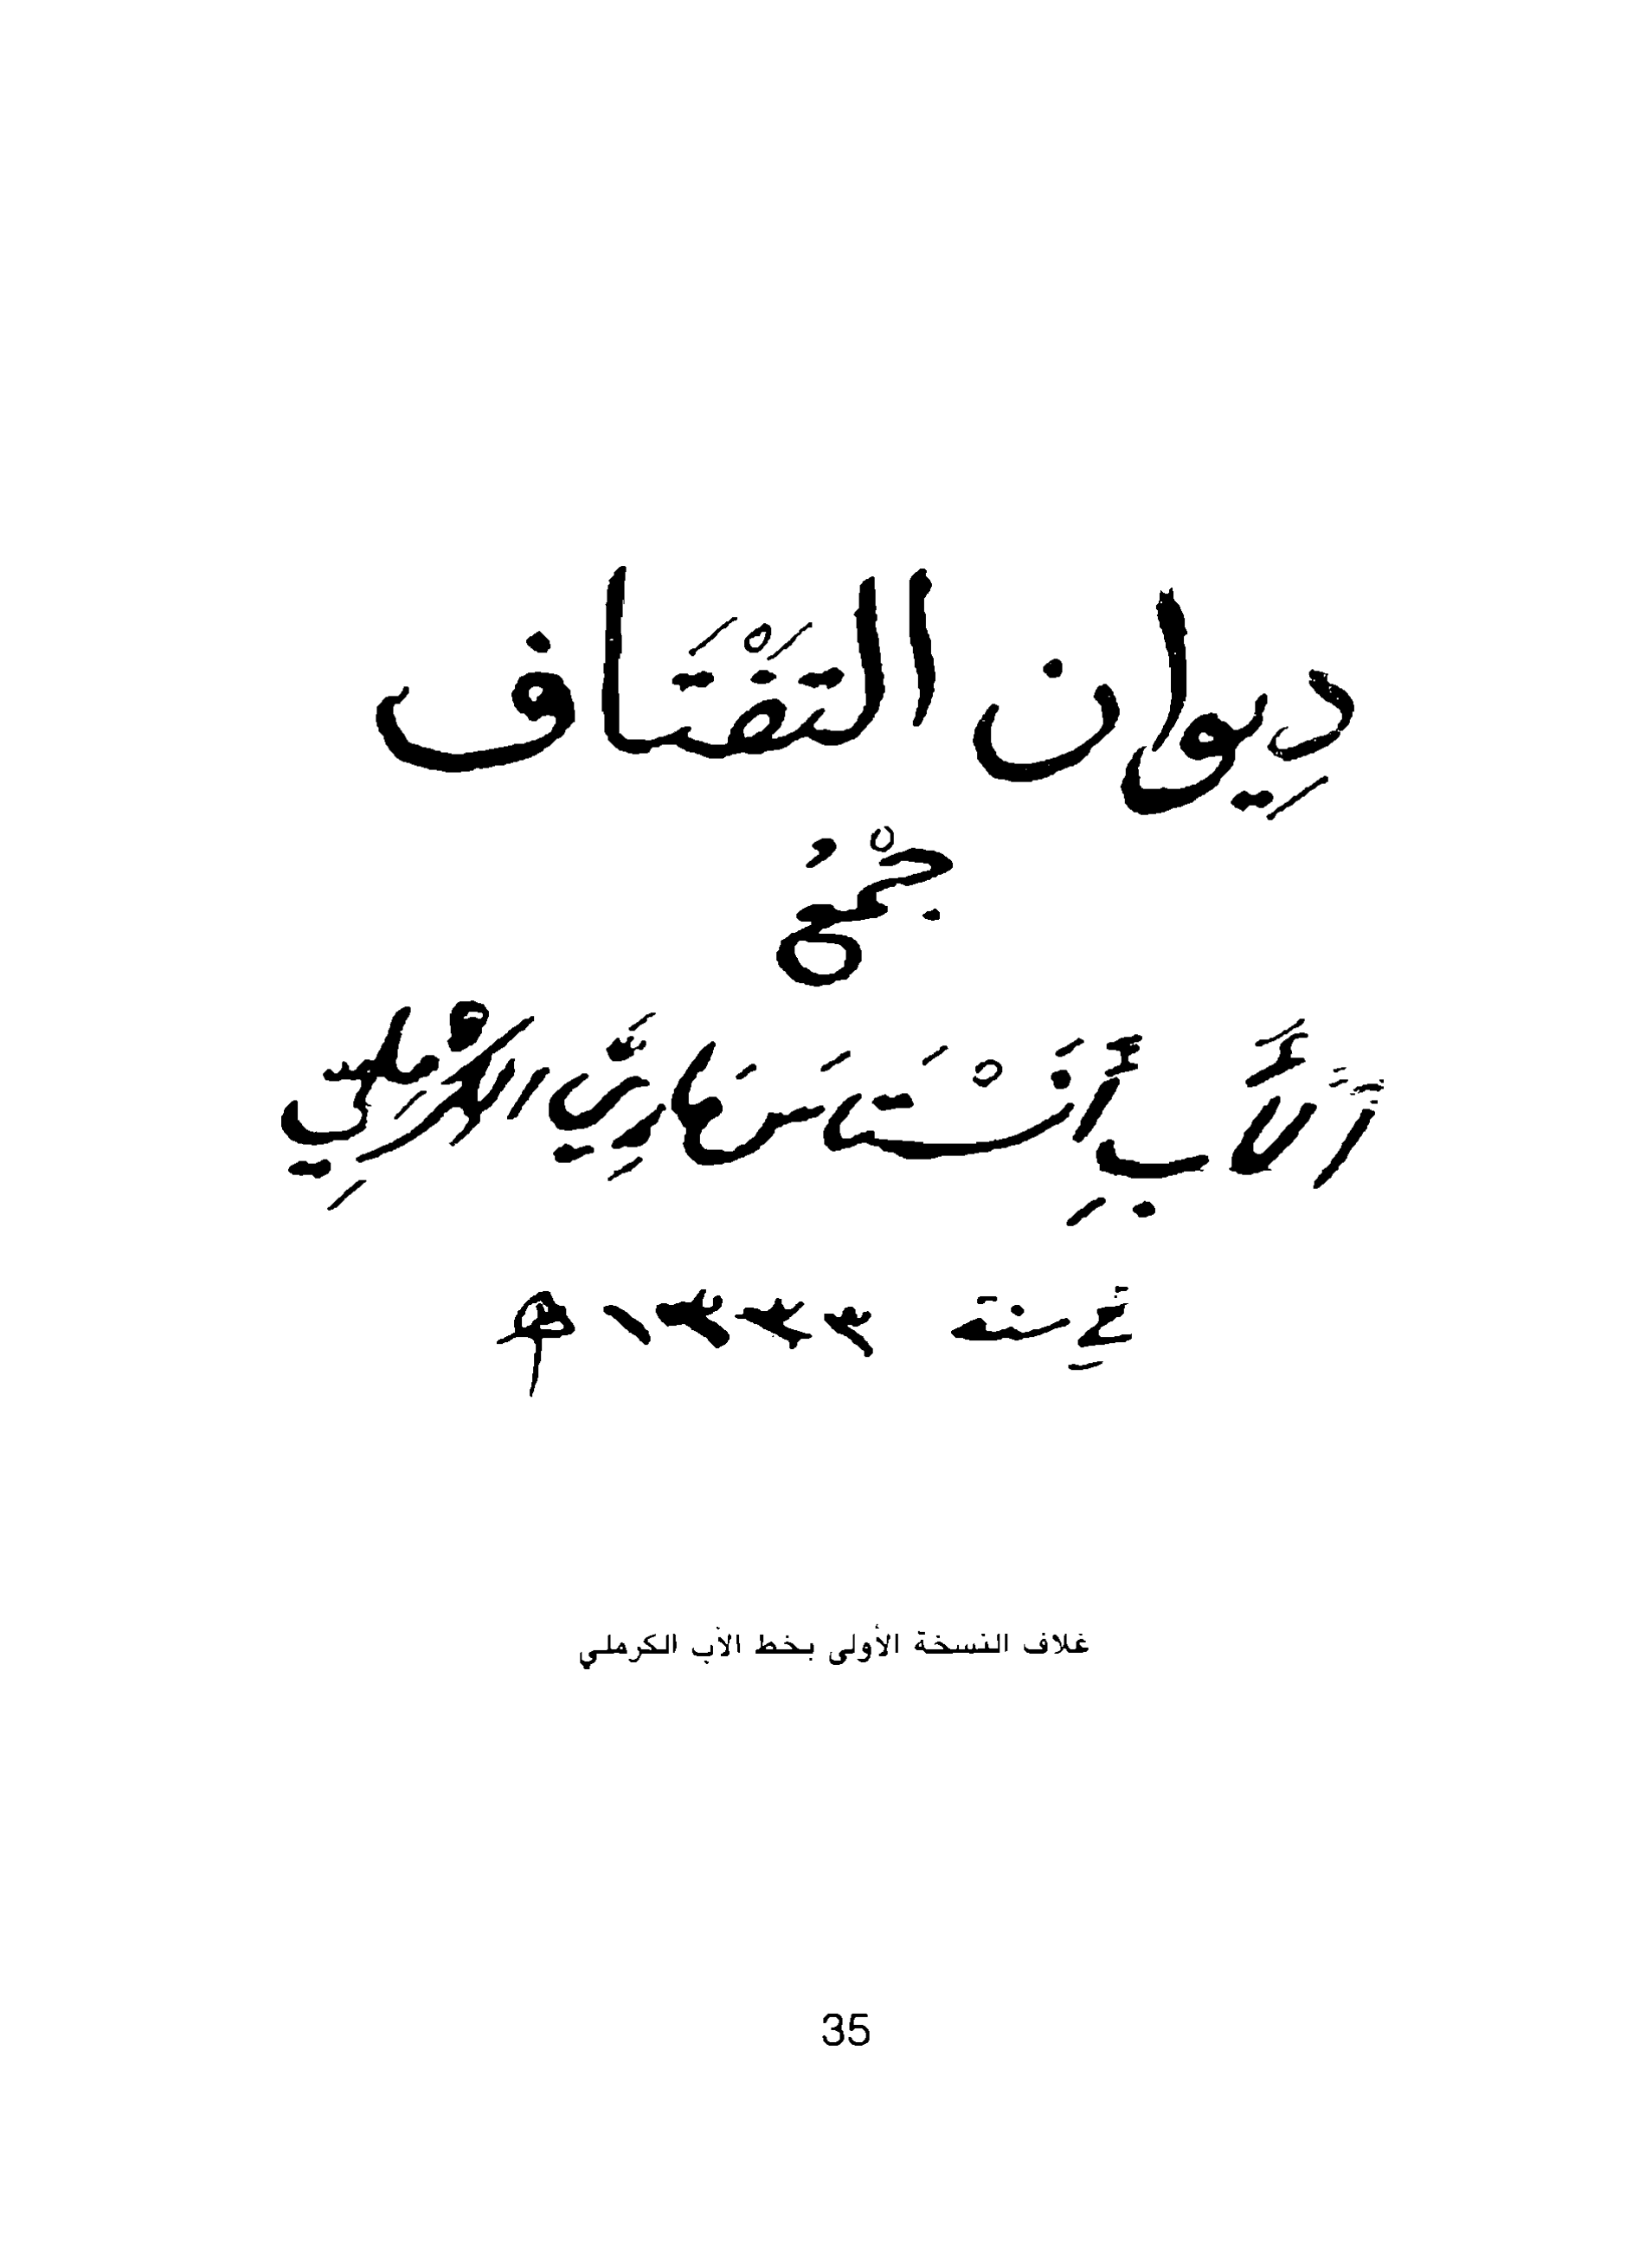 دِيوان التَّفْتَاف
جَمْعُ
أَلْأَبِ أَنِسْتَاسَ مَارِيَّ الكَرْمِلِيِّ
في سنة
غلاف النسخة الأولى بخط الأب الكرملي
35